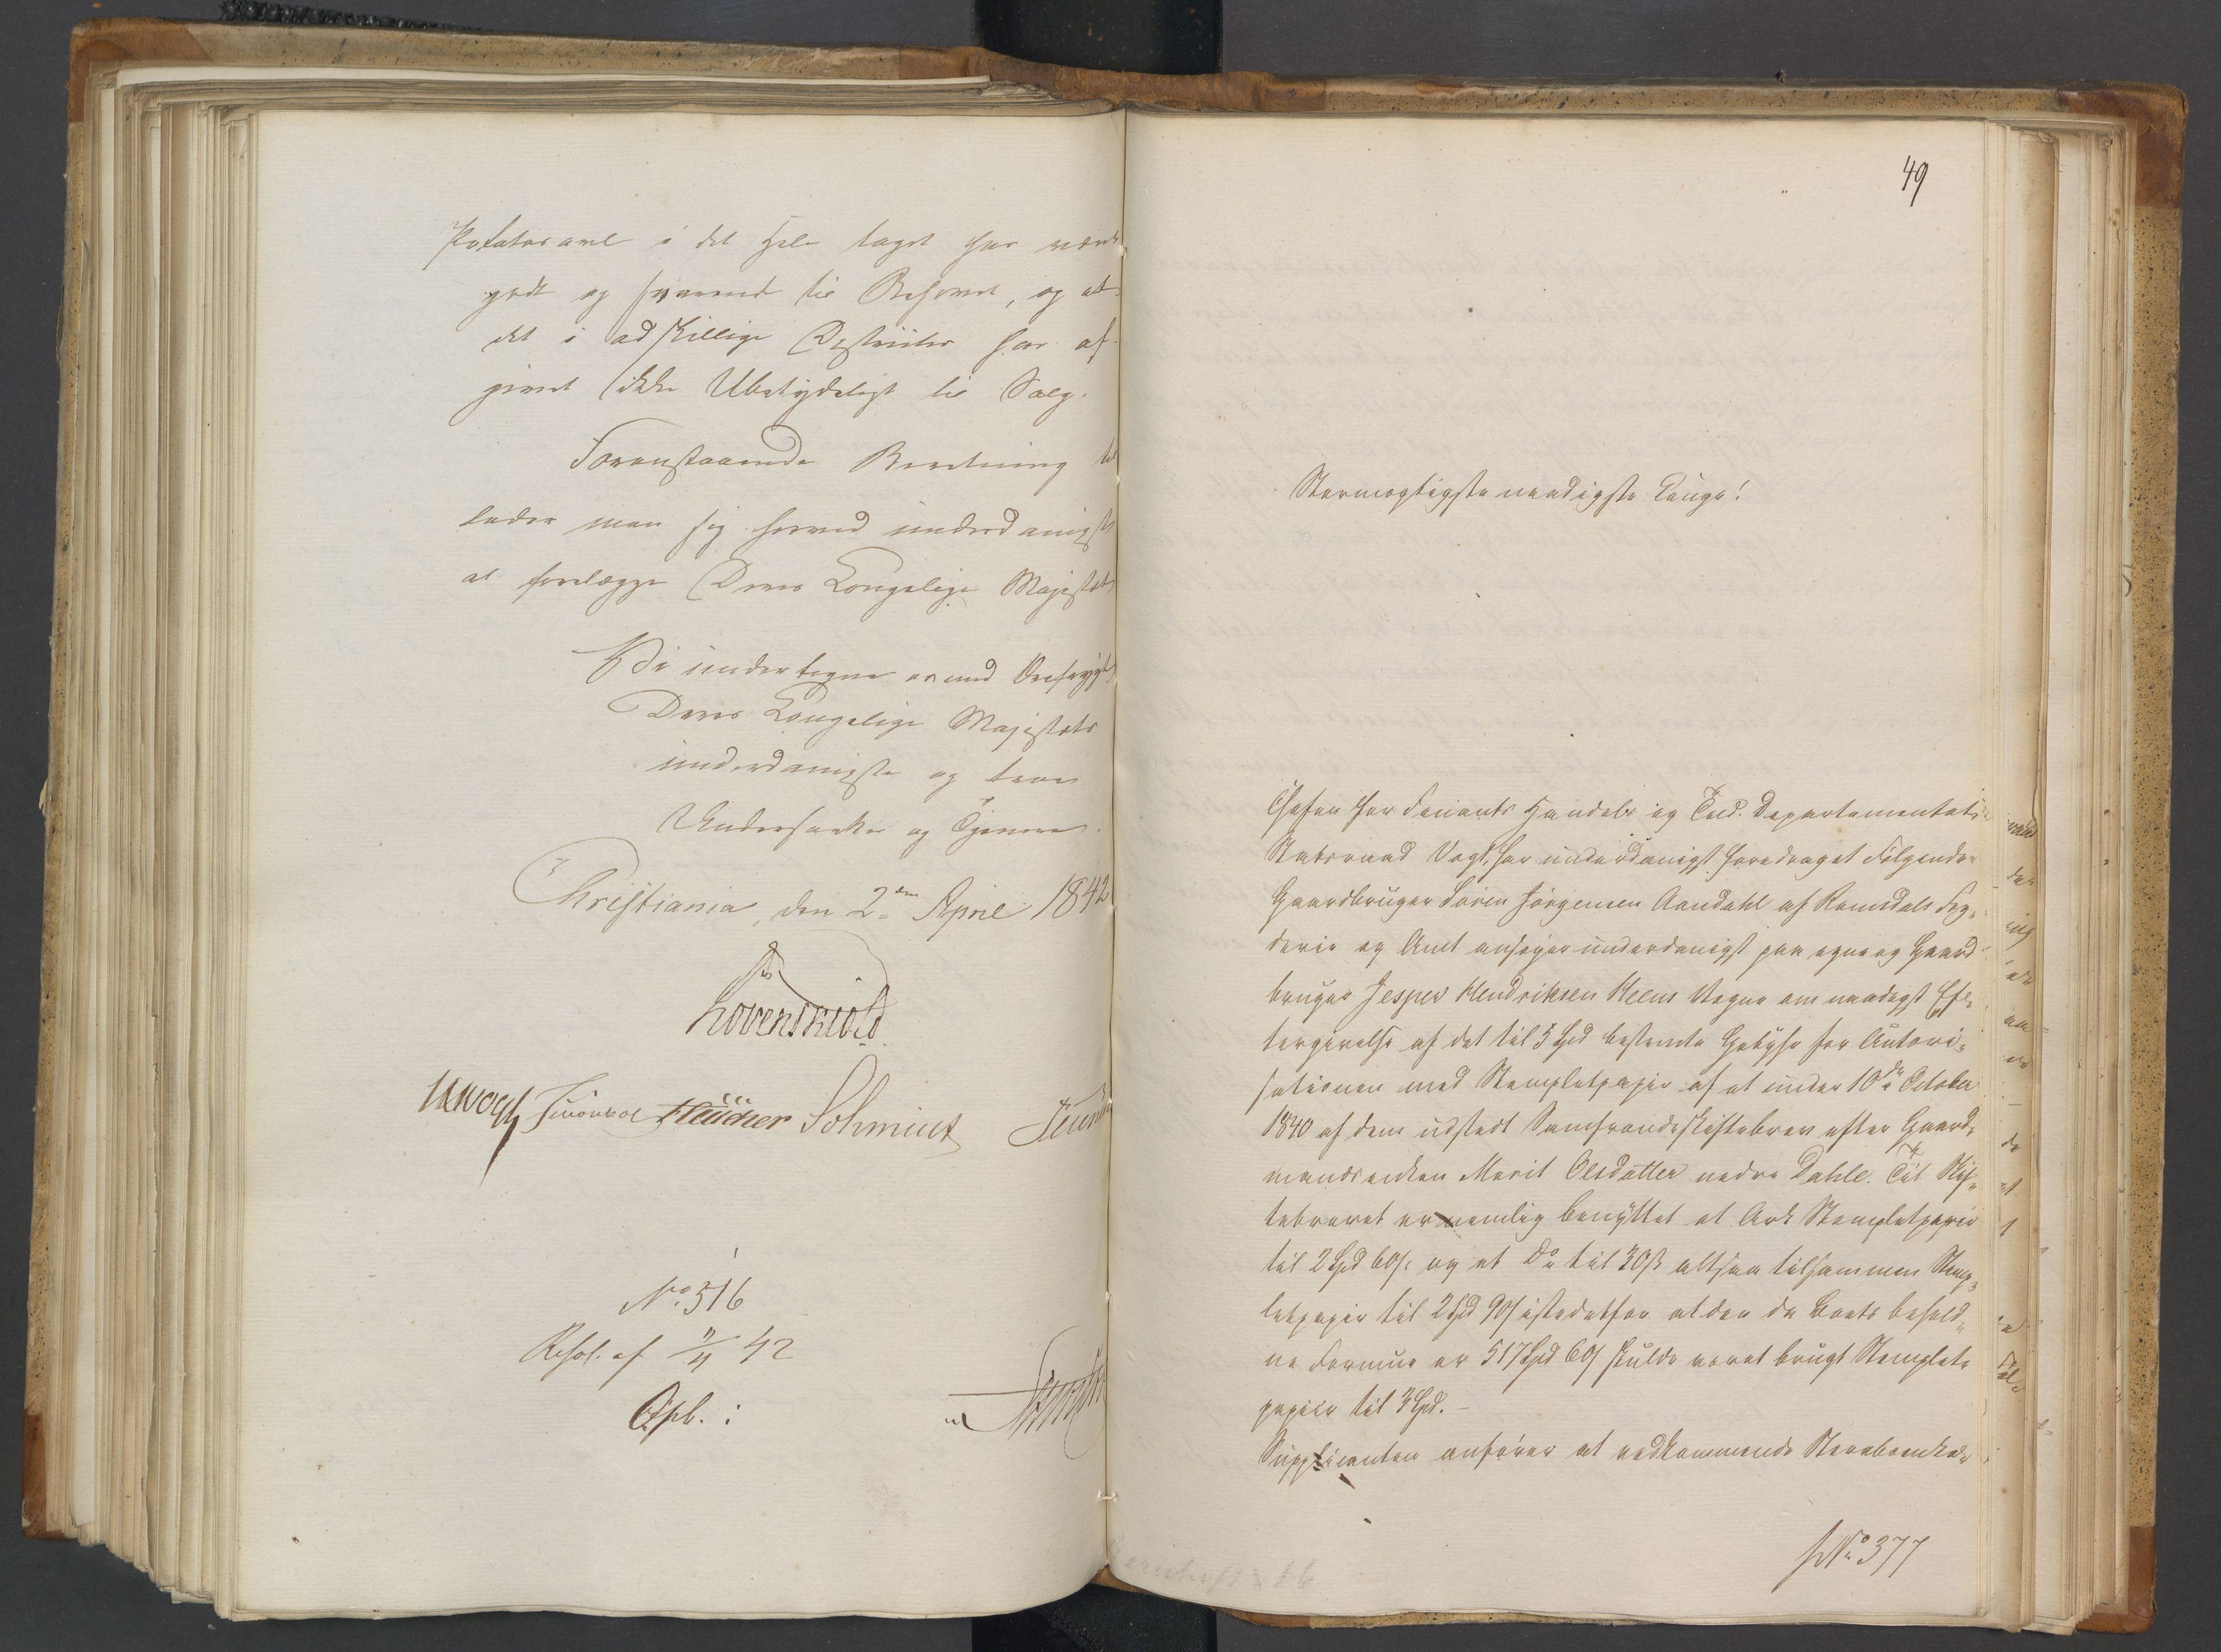 Potatosavl i det Hele taget har været
godt og svarende til Behovet, og at
det i adskillige Districter har af-
givet ikke Ubetydeligt til Salg.
Foranstaaende Beretning til
lader man sig herved underdanigst
at forelægge Deres Kongelige Majestæt
Vi undertegne os med Ærefrygt
Deres Kongelige Majestæts
underdanigste og troe
Undersaatter og Tjenere.
Christiania, den 2den April 1842
Løvenskiold
Vogt Schmidt
No 516
Resol. af 9/4 42
Exp. :
49
Stormægtigste naadigste Konge!
Chefen for Finants Handels og Told Departementet
Statsraad Vogt, har underdanigst foredraget Følgende:
Gaardbruger Søren Jørgensen Aandahl af Romsdals Fog-
derie og Amt ansøger underdanigst paa egne og Gaard
bruger Jesper Hendriksen Heens Vegne om naadigst Ef-
tergivelse af det til 5 Spd bestemte Gebyhr for Autori-
sationen med Stempletpapir af et under 10de October
1840 af dem udstedt Samfrændeskiftebrev efter Gaard-
mandsenken Marit Olsdatter nedre Dahle. Til Skif-
tebrevet er nemlig benyttet et Ark Stempletpapir
til 2 Spd 60 s. og et Do til 30 s altsaa tilsammen Stemp-
letpapir til 2 Spd 90 s istedetfor at der da Boets behold-
ne Formue er 517 Spd 60 s skulde været brugt Stemplet-
papir til 3 Spd. –
Supplicanten anfører at vedkommende Stervboenke-
No 377